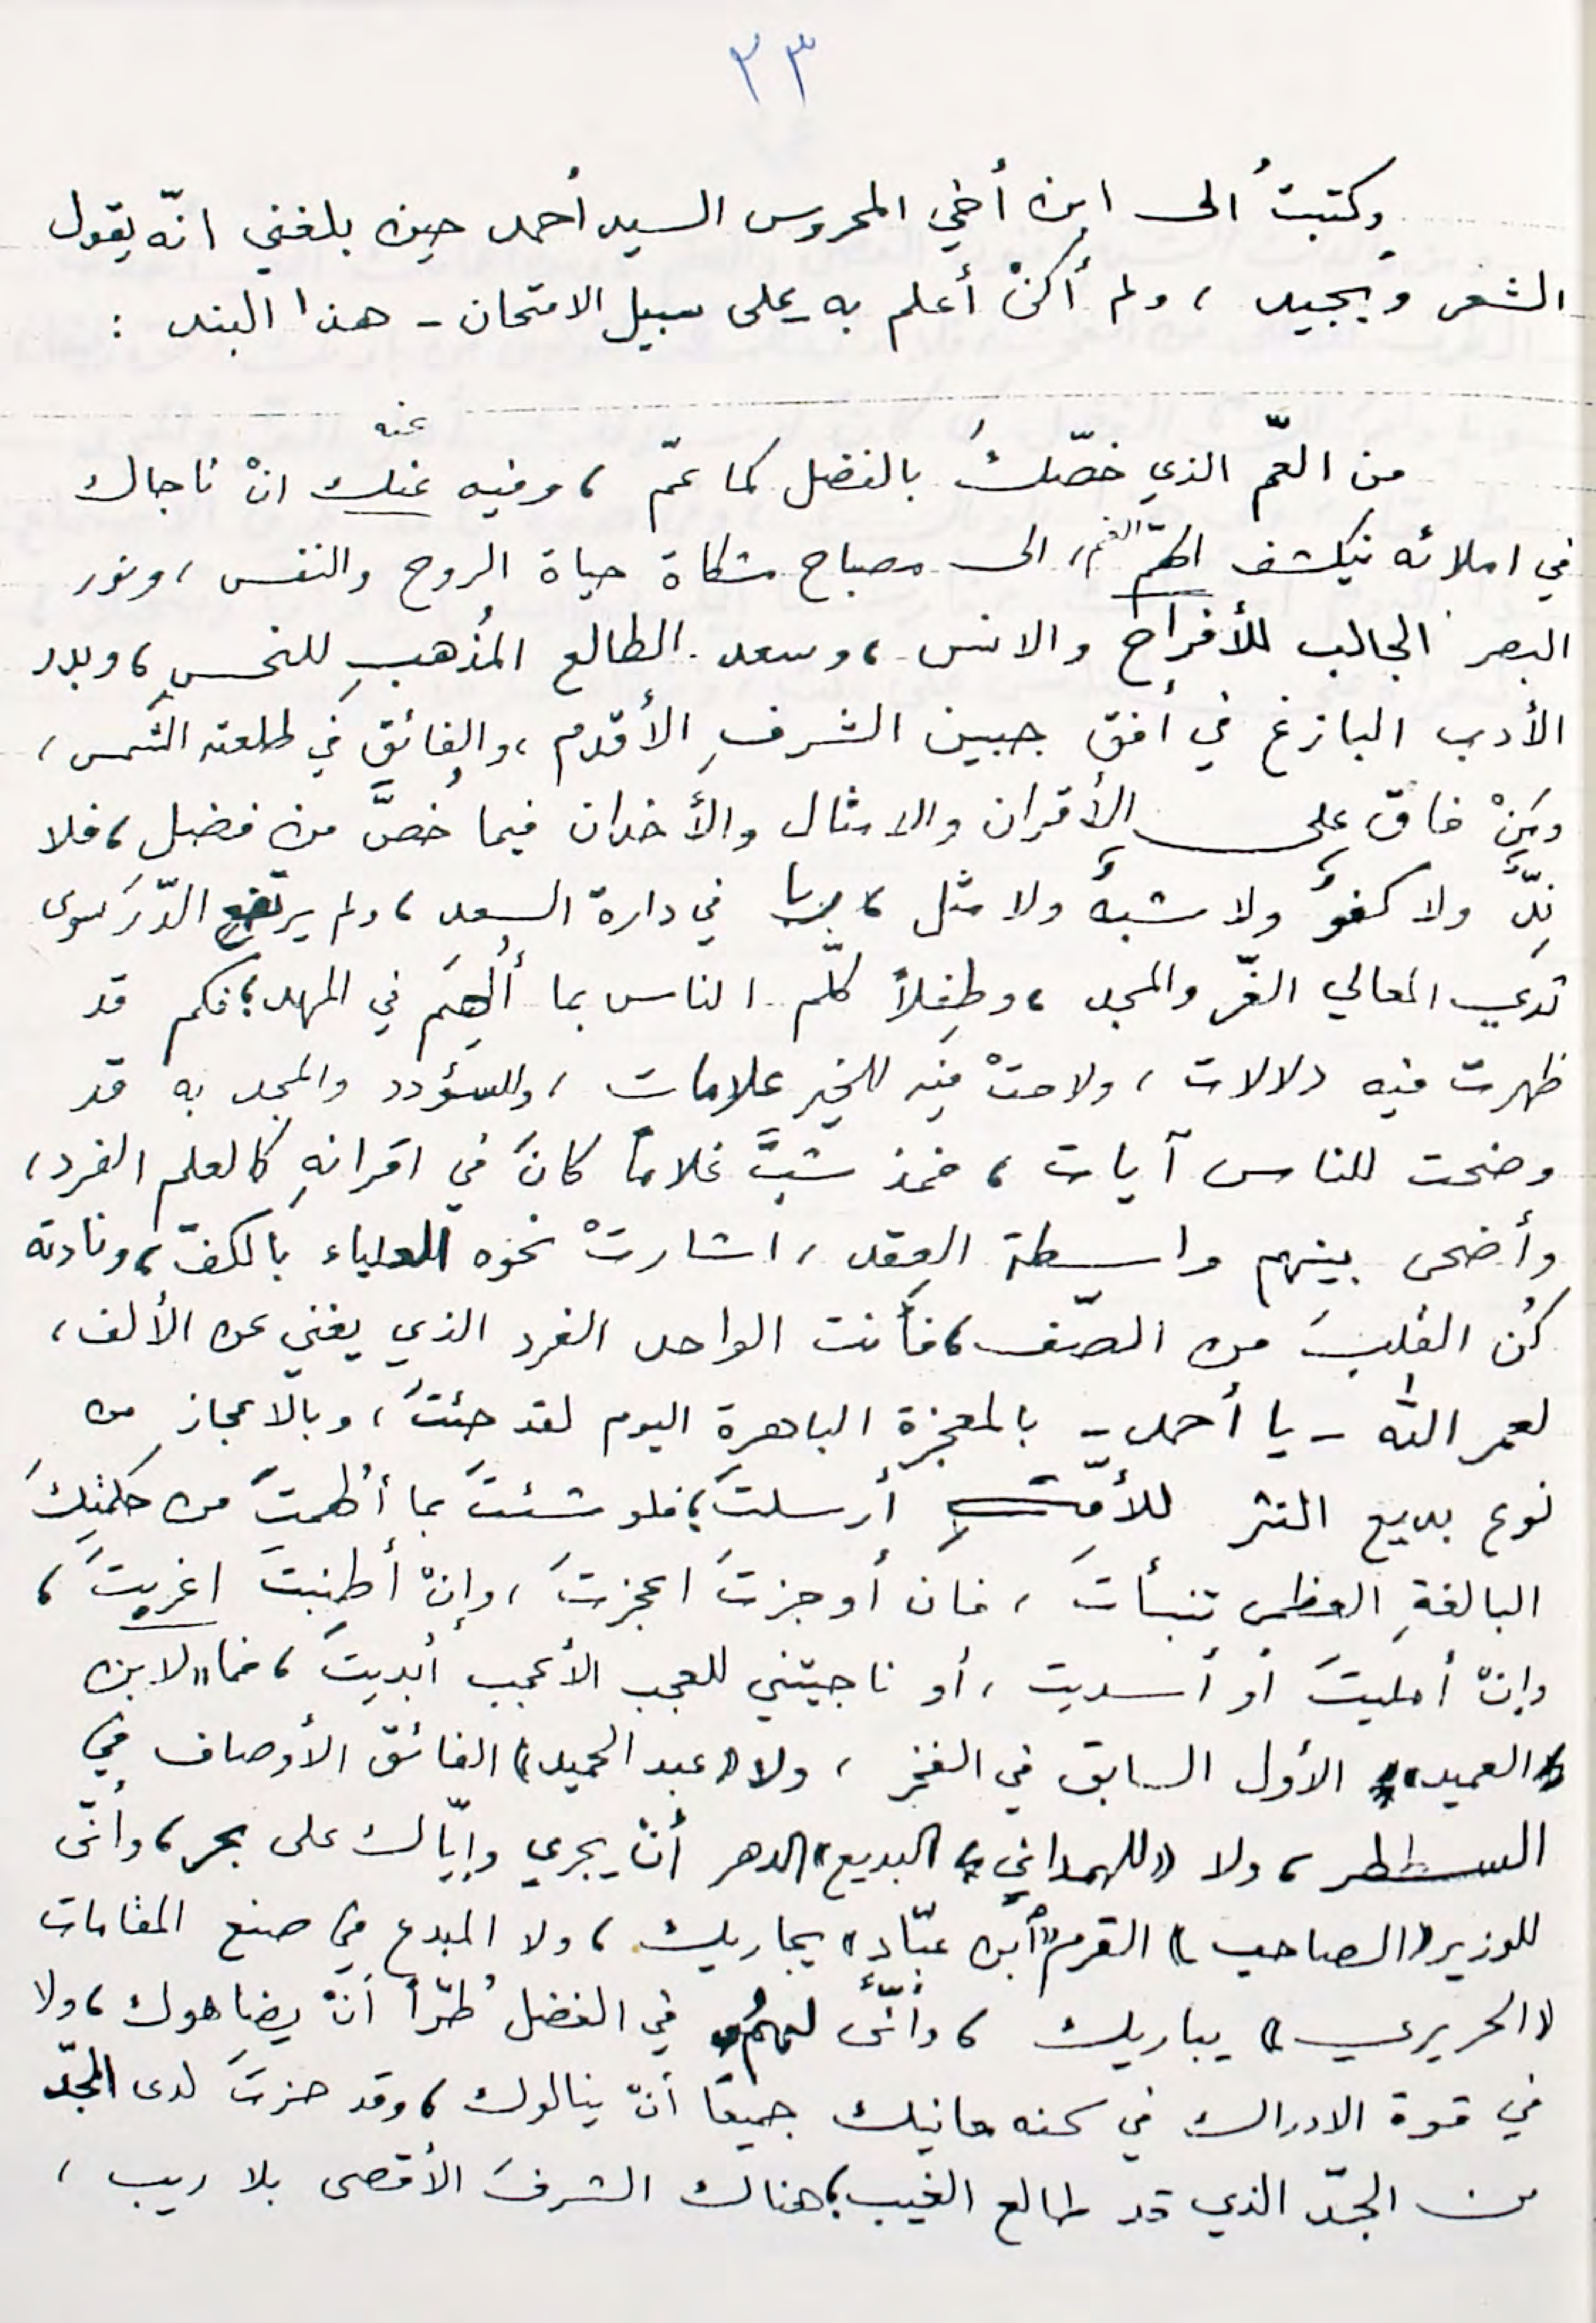 ٣٣
وكتبتُ الى ابن أخي المحروس السيد أحمد حين بلغني انّه يقول
الشعر ويجيد ، ولم أكنْ أعلم به على سبيل الامتحان - هذا البند :
عنه
من العمّ الذي خصّكَ بالفضل كما عمّ ، وفيه عنك انْ ناجاك
في املائه ينكشف الهمّ الغم ، الى مصباح مشكاة حياة الروح والنفس ، ونور
البصر الجالب للأفراح والانس ، وسعد الطالع المُذهبِ للنحسِ ، وبدر
الأدب البازغ في أفق جبين الشرفِ الأقدم ، والفائق في طلعته الشمس ،
ومَنْ فاق على الأقران والامثال والأخدان فيما خُصَّ من فضل ، فلا
نِدٌّ ولا كفؤٌ ولا شبهٌ ولا مثل ، ربا في دارة السعد ، ولم يرتضع الدّرَ سوى
ثدي المعالي الغّر والمجد ، وطفلاً كلّم الناس بما أُلهِمَ في المهد ؛ فكم قد
ظهرت فيه دلالات ، ولاحتْ فيه للخير علامات ، وللسؤدد والمجد به قد
وضحت للناس آيات ، فمذ شبَّ غلاماً كانَ في اقرانهِ كالعلم الفرد ،
وأضحى بينهم واسطة العِقد ، اشارتْ نحوه العلياء بالكفّ ، ونادته
كُن القلبَ من الصّف ، فأنت الواحد الفرد الذي يغني عن الألف ،
لعمر الله - يا أحمد - بالمعجزة الباهرة اليوم لقد جئتَ ، وبالاعجاز من
نوع بديع النثر للأمّةِ أُرسلتَ ؛ فلو شئتَ بما أُلهمتَ من حكمتِكَ
البالغةِ العظمى تنبأتَ ، فان أوجزتَ اعجزتَ ، وإنْ أطنبتَ اغربتَ ،
وإنْ أمليتَ أو أسديت ، أو ناجيتني للعجب الأعجب أبديتَ ، فما « لابن
العميد » الأول السابق في الفخر ، ولا « عبد الحميد » الفائق الأوصاف في
السطر ، ولا « للهمداني » البديع » الدهر أنْ يجري وإيّاك على بحر ، وأنّى
للوزير « الصاحب » القرم « ابن عبّاد » يجاريك ، ولا المبدع في صنع المقامات
« الحريري » يباريك ، وأنّى لهمُ في الفضل طُرّاً أنْ يضاهوك ، ولا
في قوة الادراك في كنه معانيك جميعًا أنْ ينالوك ، وقد حزتَ لدى المجدّ
من الجدّ الذي قد طالع الغيب ؛ هناك الشرفَ الأقصى بلا ريب ،